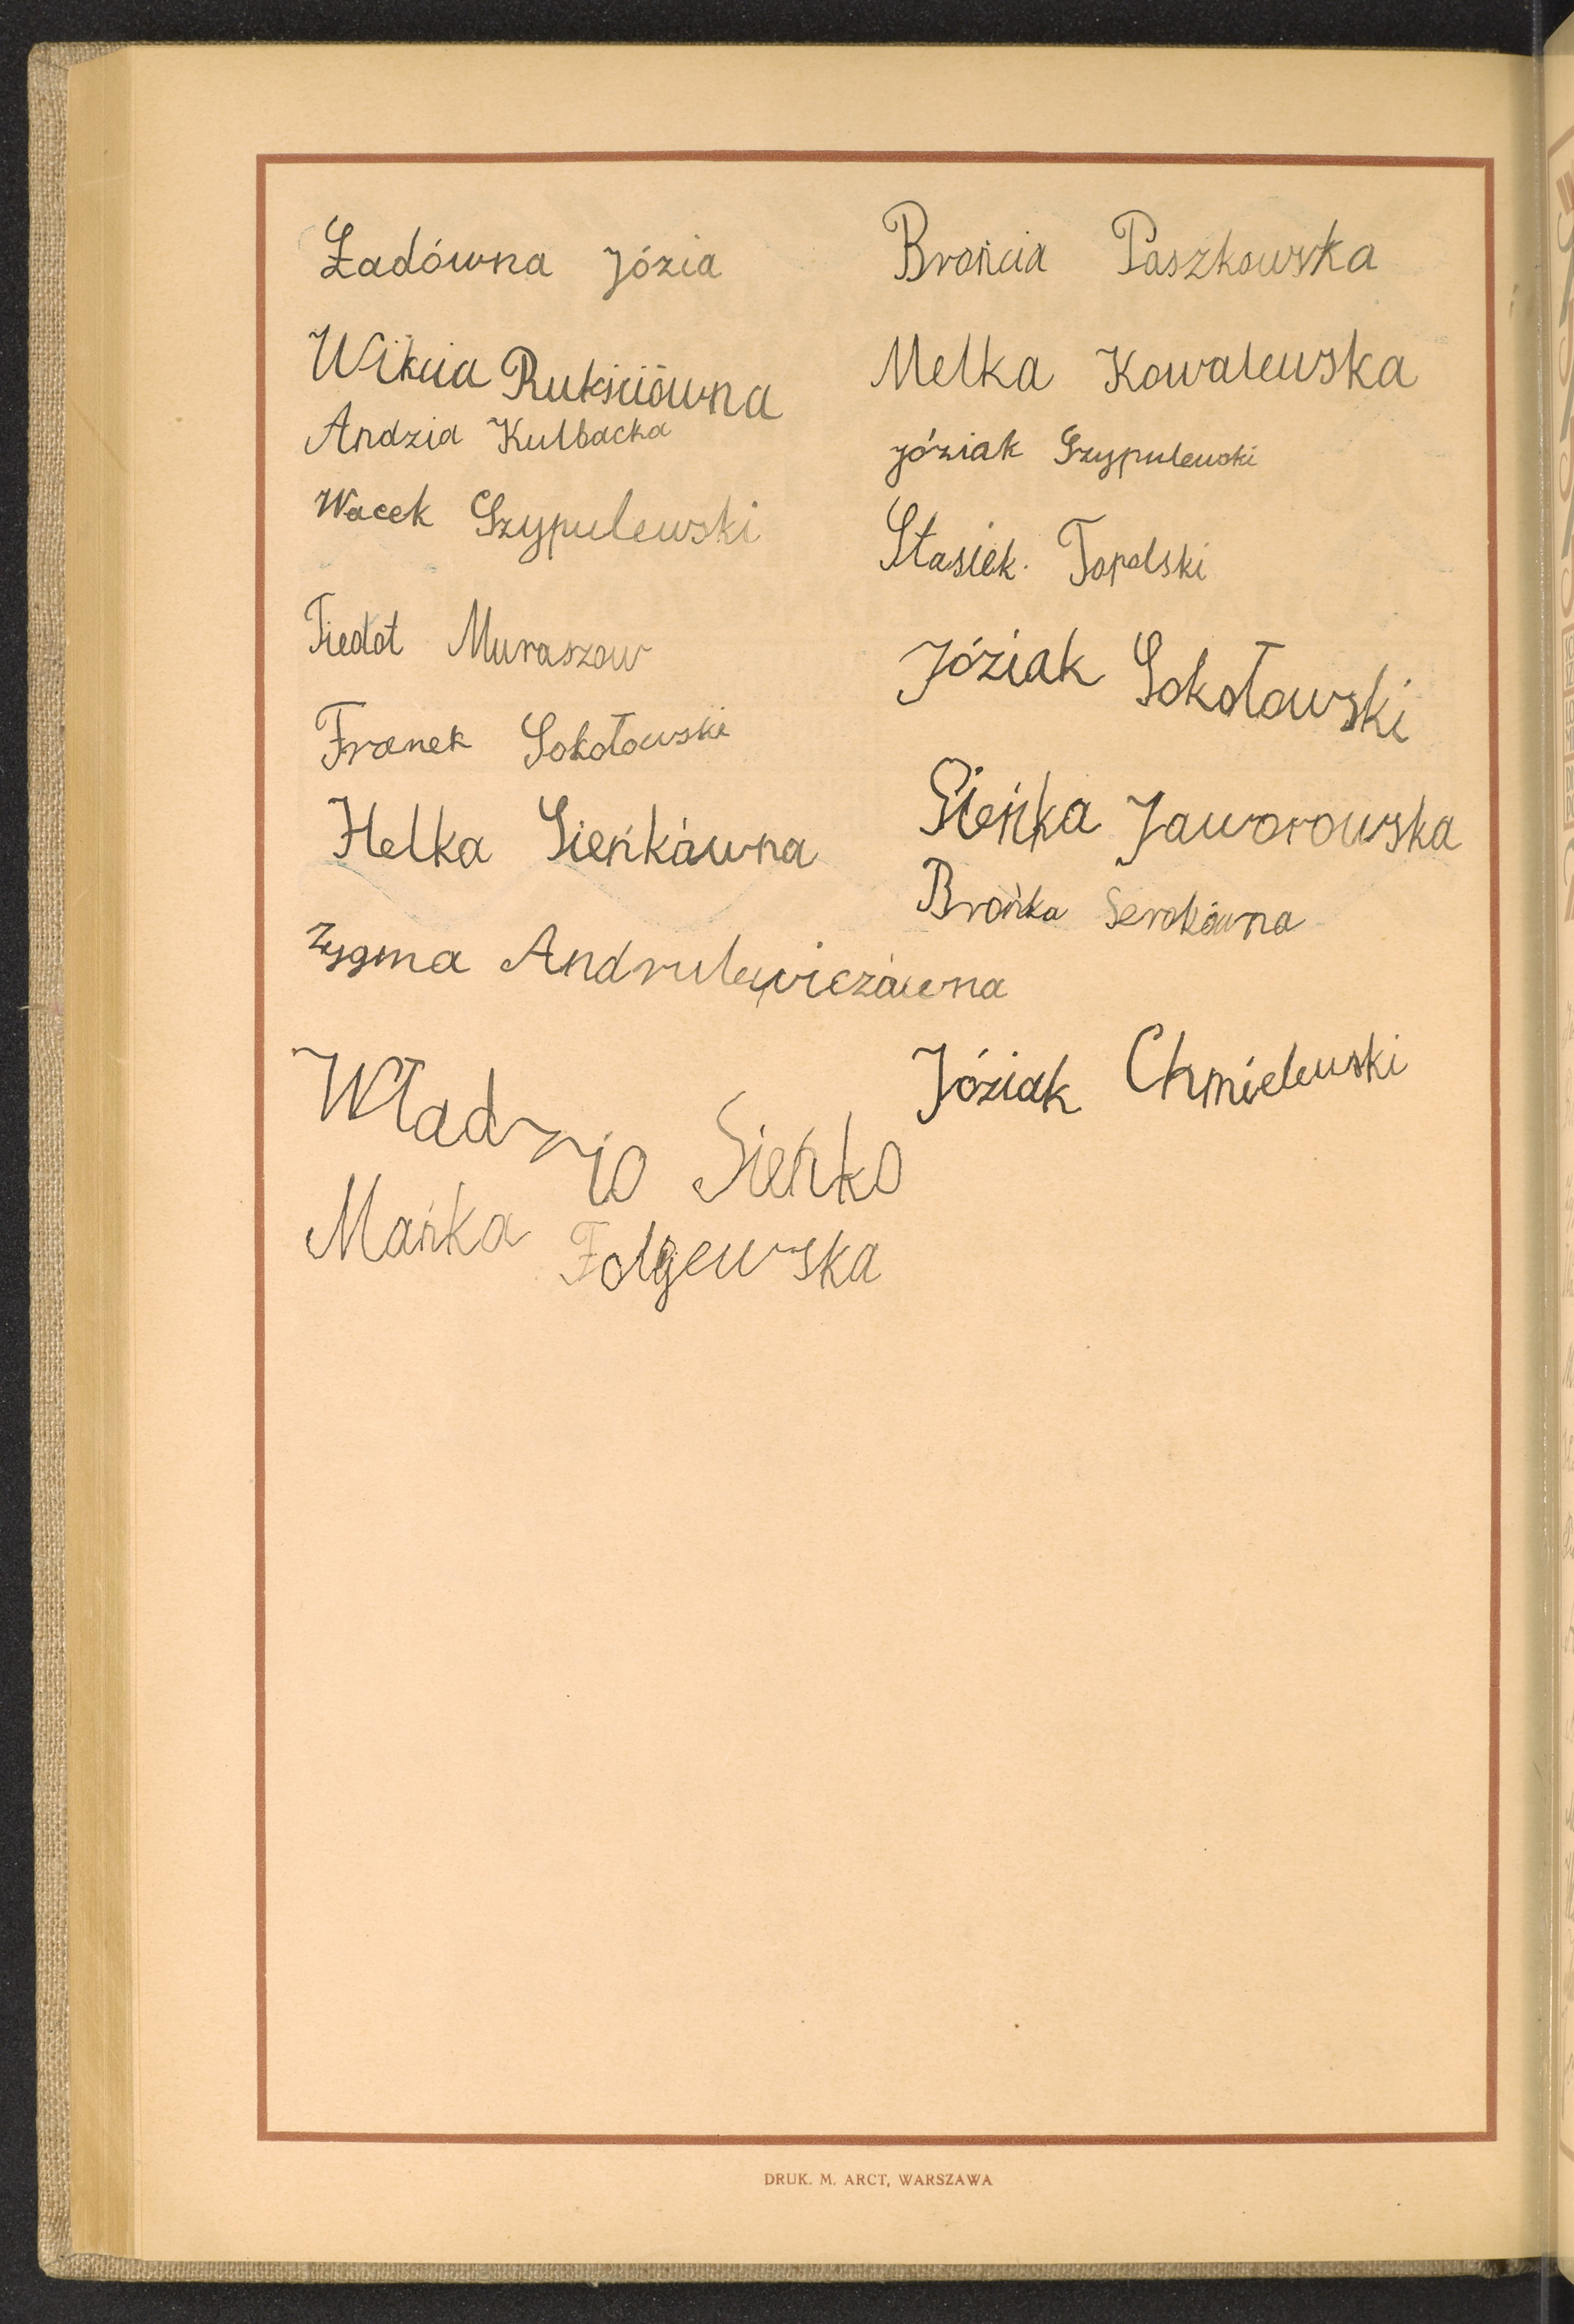 Żadówna Józia
Wikcia Rukściówna
Andzia Kulbacka
Wacek Szypulewski
Fiedot Muraszow
Franek Sokołowski
Helka Sieńkówna
Zygma Andrulewiczówna
Władzio Sieńko
Mańka Folgewska
Brońcia Paszkowska
Melka Kowalewska
Józiak Szypulewski
Stasiek. Topolski
Józiak Sokołowski
Gieńka Jaworowska
Brońka Serokówna
Józiak Chmielewski
DRUK. M. ARCT, WARSZAWA